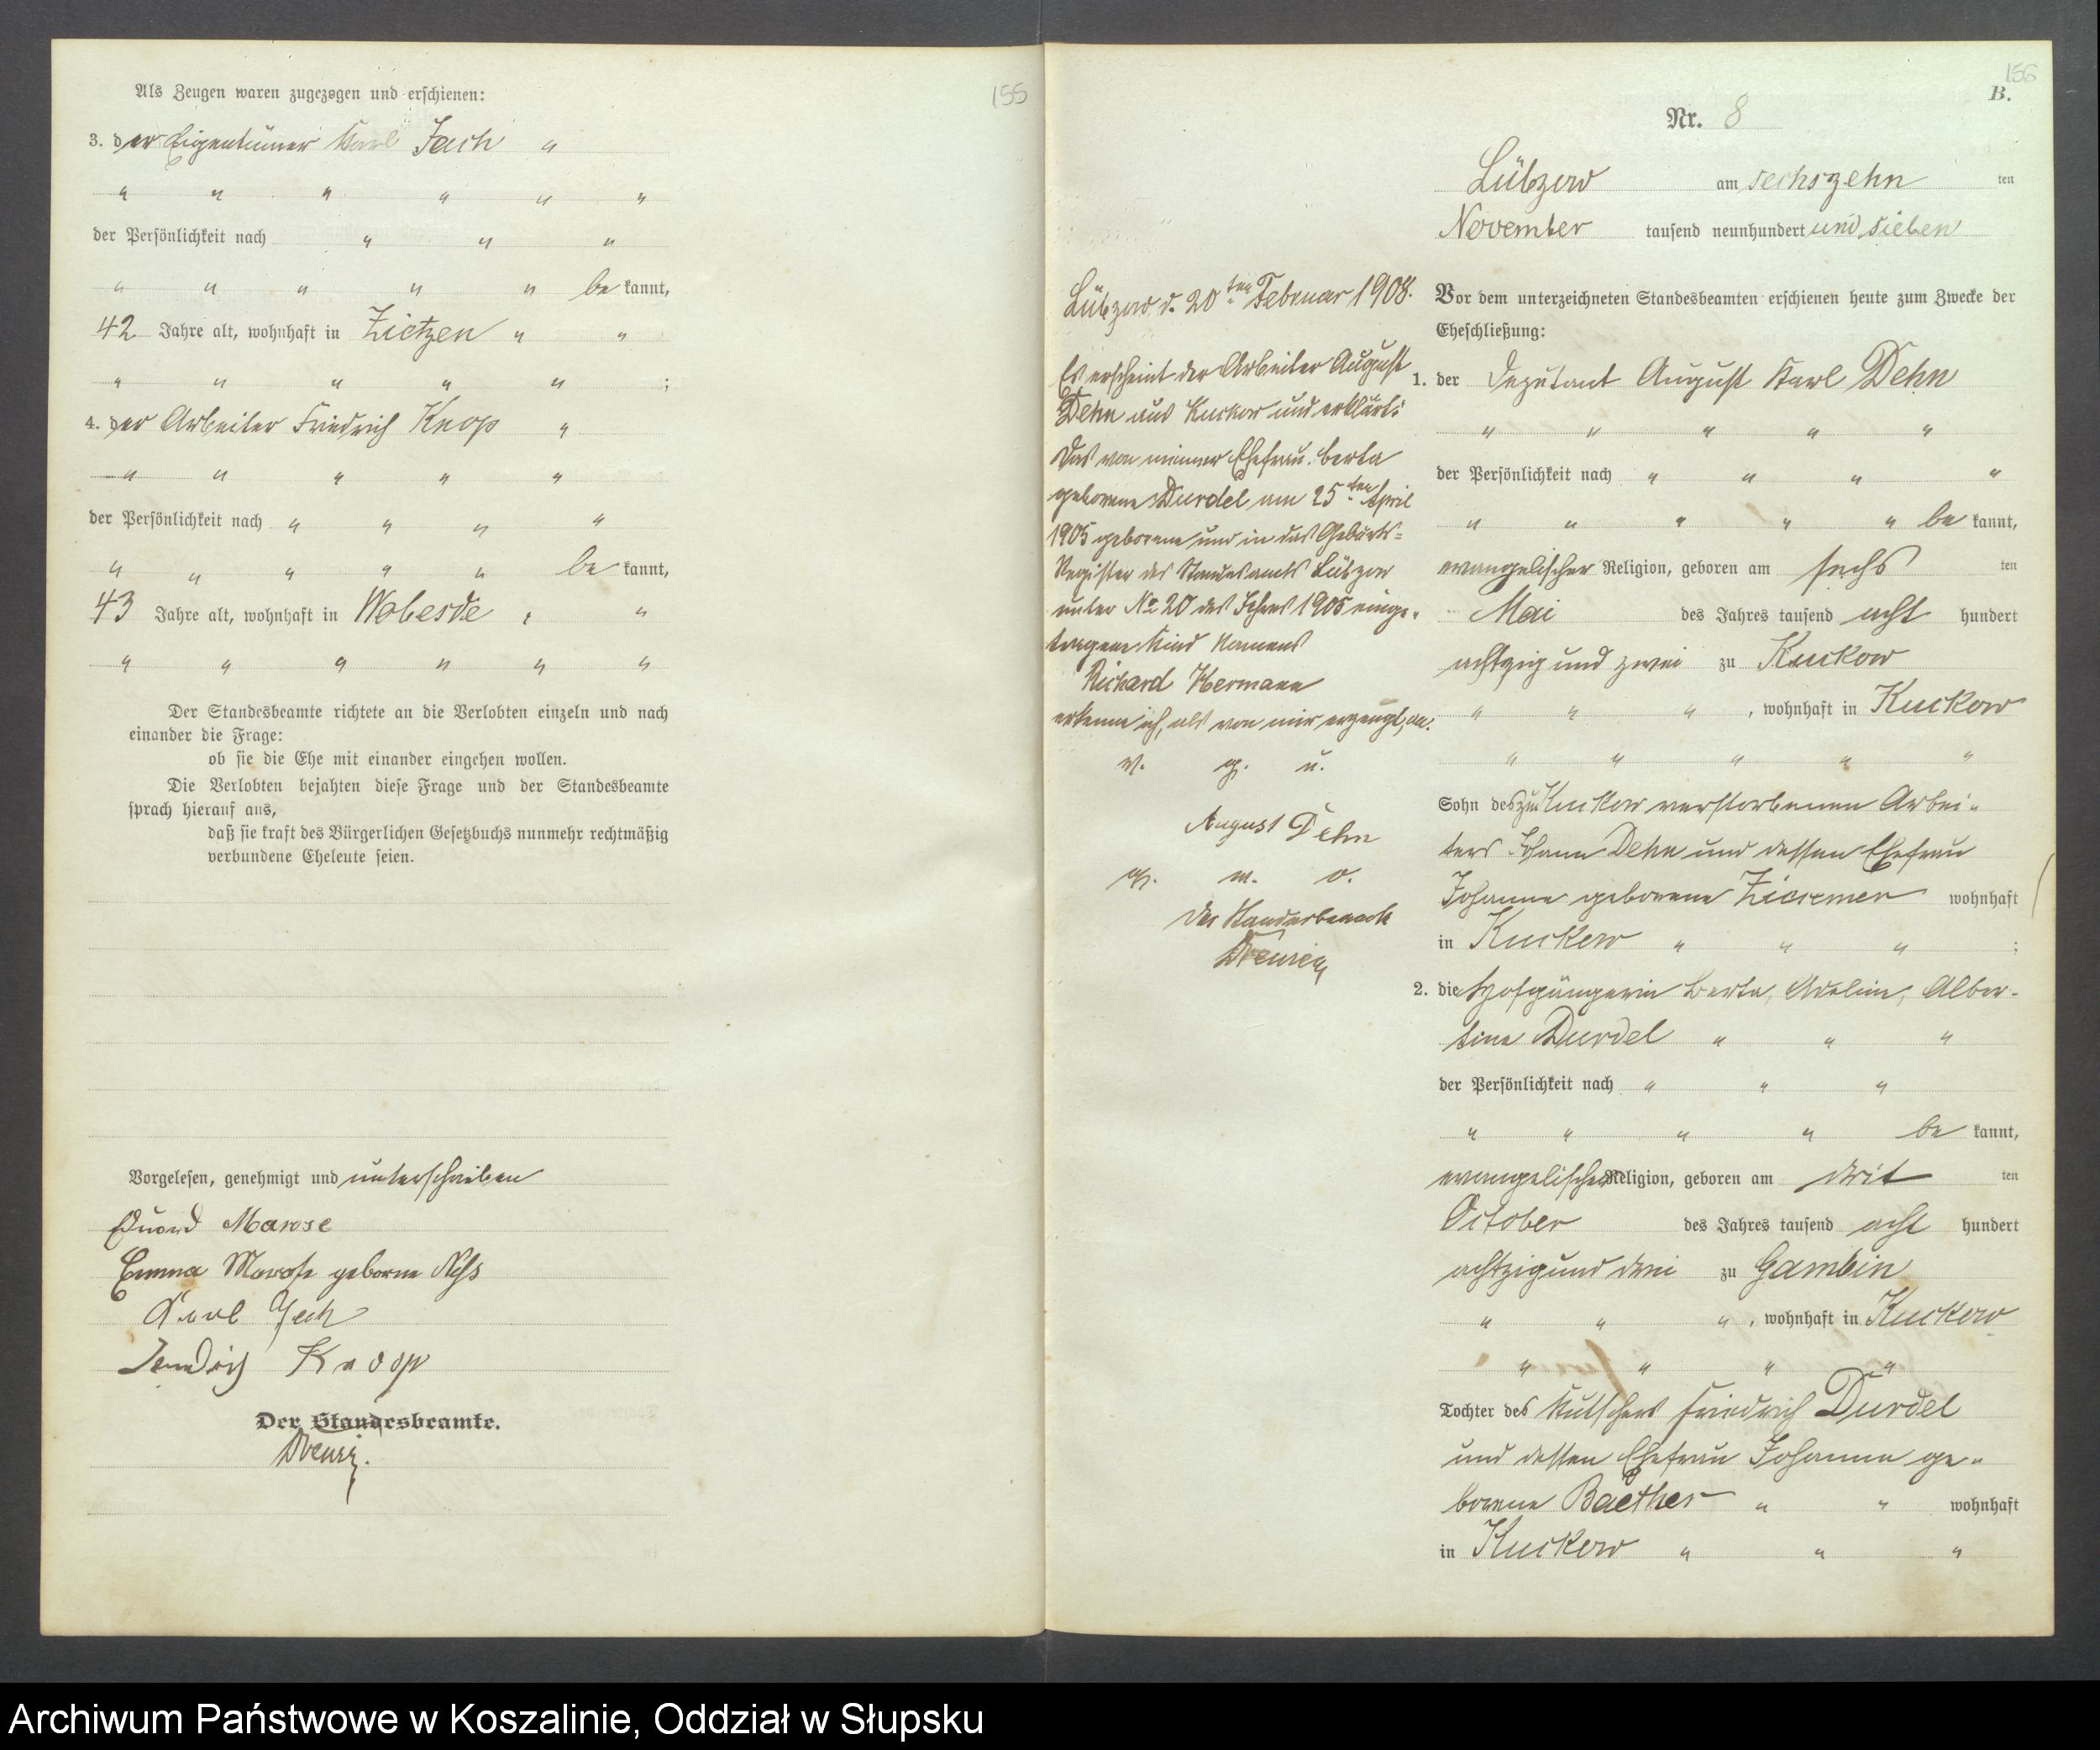 155
Als Zeugen waren zugezogen und erschienen:
3. der Eigentümer Karl Jach "
" " " " " "
der Persönlichkeit nach " " "
" " " " " be kannt,
42 Jahre alt, wohnhaft in Zietzen " "
" " " " " ;
4. der Arbeiter Friedrich Knop "
" " " " "
der Persönlichkeit nach " " " "
" " " " " be kannt,
43 Jahre alt, wohnhaft in Wobesde " "
" " " " " "
Der Standesbeamte richtete an die Verlobten einzeln und nach
einander die Frage:
ob sie die Ehe mit einander eingehen wollen.
Die Verlobten bejahten diese Frage und der Standesbeamte
sprach hierauf aus,
daß sie kraft des Bürgerlichen Gesetzbuchs nunmehr rechtmäßig
verbundene Eheleute seien.
Vorgelesen, genehmigt und unterschrieben
Eduard Marose
Emma Marose geborne
Karl Jach
Friedrich Knoop
Der Standesbeamte.
156
B.
Nr. 8
Lübzow am sechszehn ten
November tausend neunhundert und sieben
Vor dem unterzeichneten Standesbeamten erschienen heute zum Zwecke der
Eheschließung:
1. der Deputant August Karl Dehn
" " " " "
der Persönlichkeit nach " " " "
" " " " " be kannt,
evangelischer Religion, geboren am sechs ten
Mai des Jahres tausend acht hundert
achtzig und zwei zu Kuckow
" " " , wohnhaft in Kuckow
" " " " "
Sohn des zu Kuckow verstorbenen Arbei-
ters Johann Dehn und dessen Ehefrau
Johanne geborene Ziesemer wohnhaft
in Kuckow " " " ;
2. die Hofgängerin Berta, Adeline, Alber-
tine Durdel " " "
der Persönlichkeit nach " " "
" " " " be kannt,
evangelischer Religion, geboren am drit ten
October des Jahres tausend acht hundert
achtzig und drei zu Gambin
" " " , wohnhaft in Kuckow
" " " "
Tochter des Kutschers Friedrich Durdel
und dessen Ehefrau Johanne ge-
borene Baether " " wohnhaft
in Kuckow " " "
Lübzow d. 20ten Februar 1908.
Es erscheint der Arbeiter August
Dehn aus Kuckow und erklärt:
Das von meiner Ehefrau Berta
geborene Durdel am 25ten April
1905 geborene und in das Geburts-
Register des Standesamts Lübzow
unter No 20 des Jahres 1905 einge-
tragene Kind Namens
Richard Hermann
erkenne ich, als von mir erzeugt, an.
v. g. u.
August Dehn
g. w. o.
Der Standesbeamte
Archiwum Państwowe w Koszalinie, Oddział w Słupsku